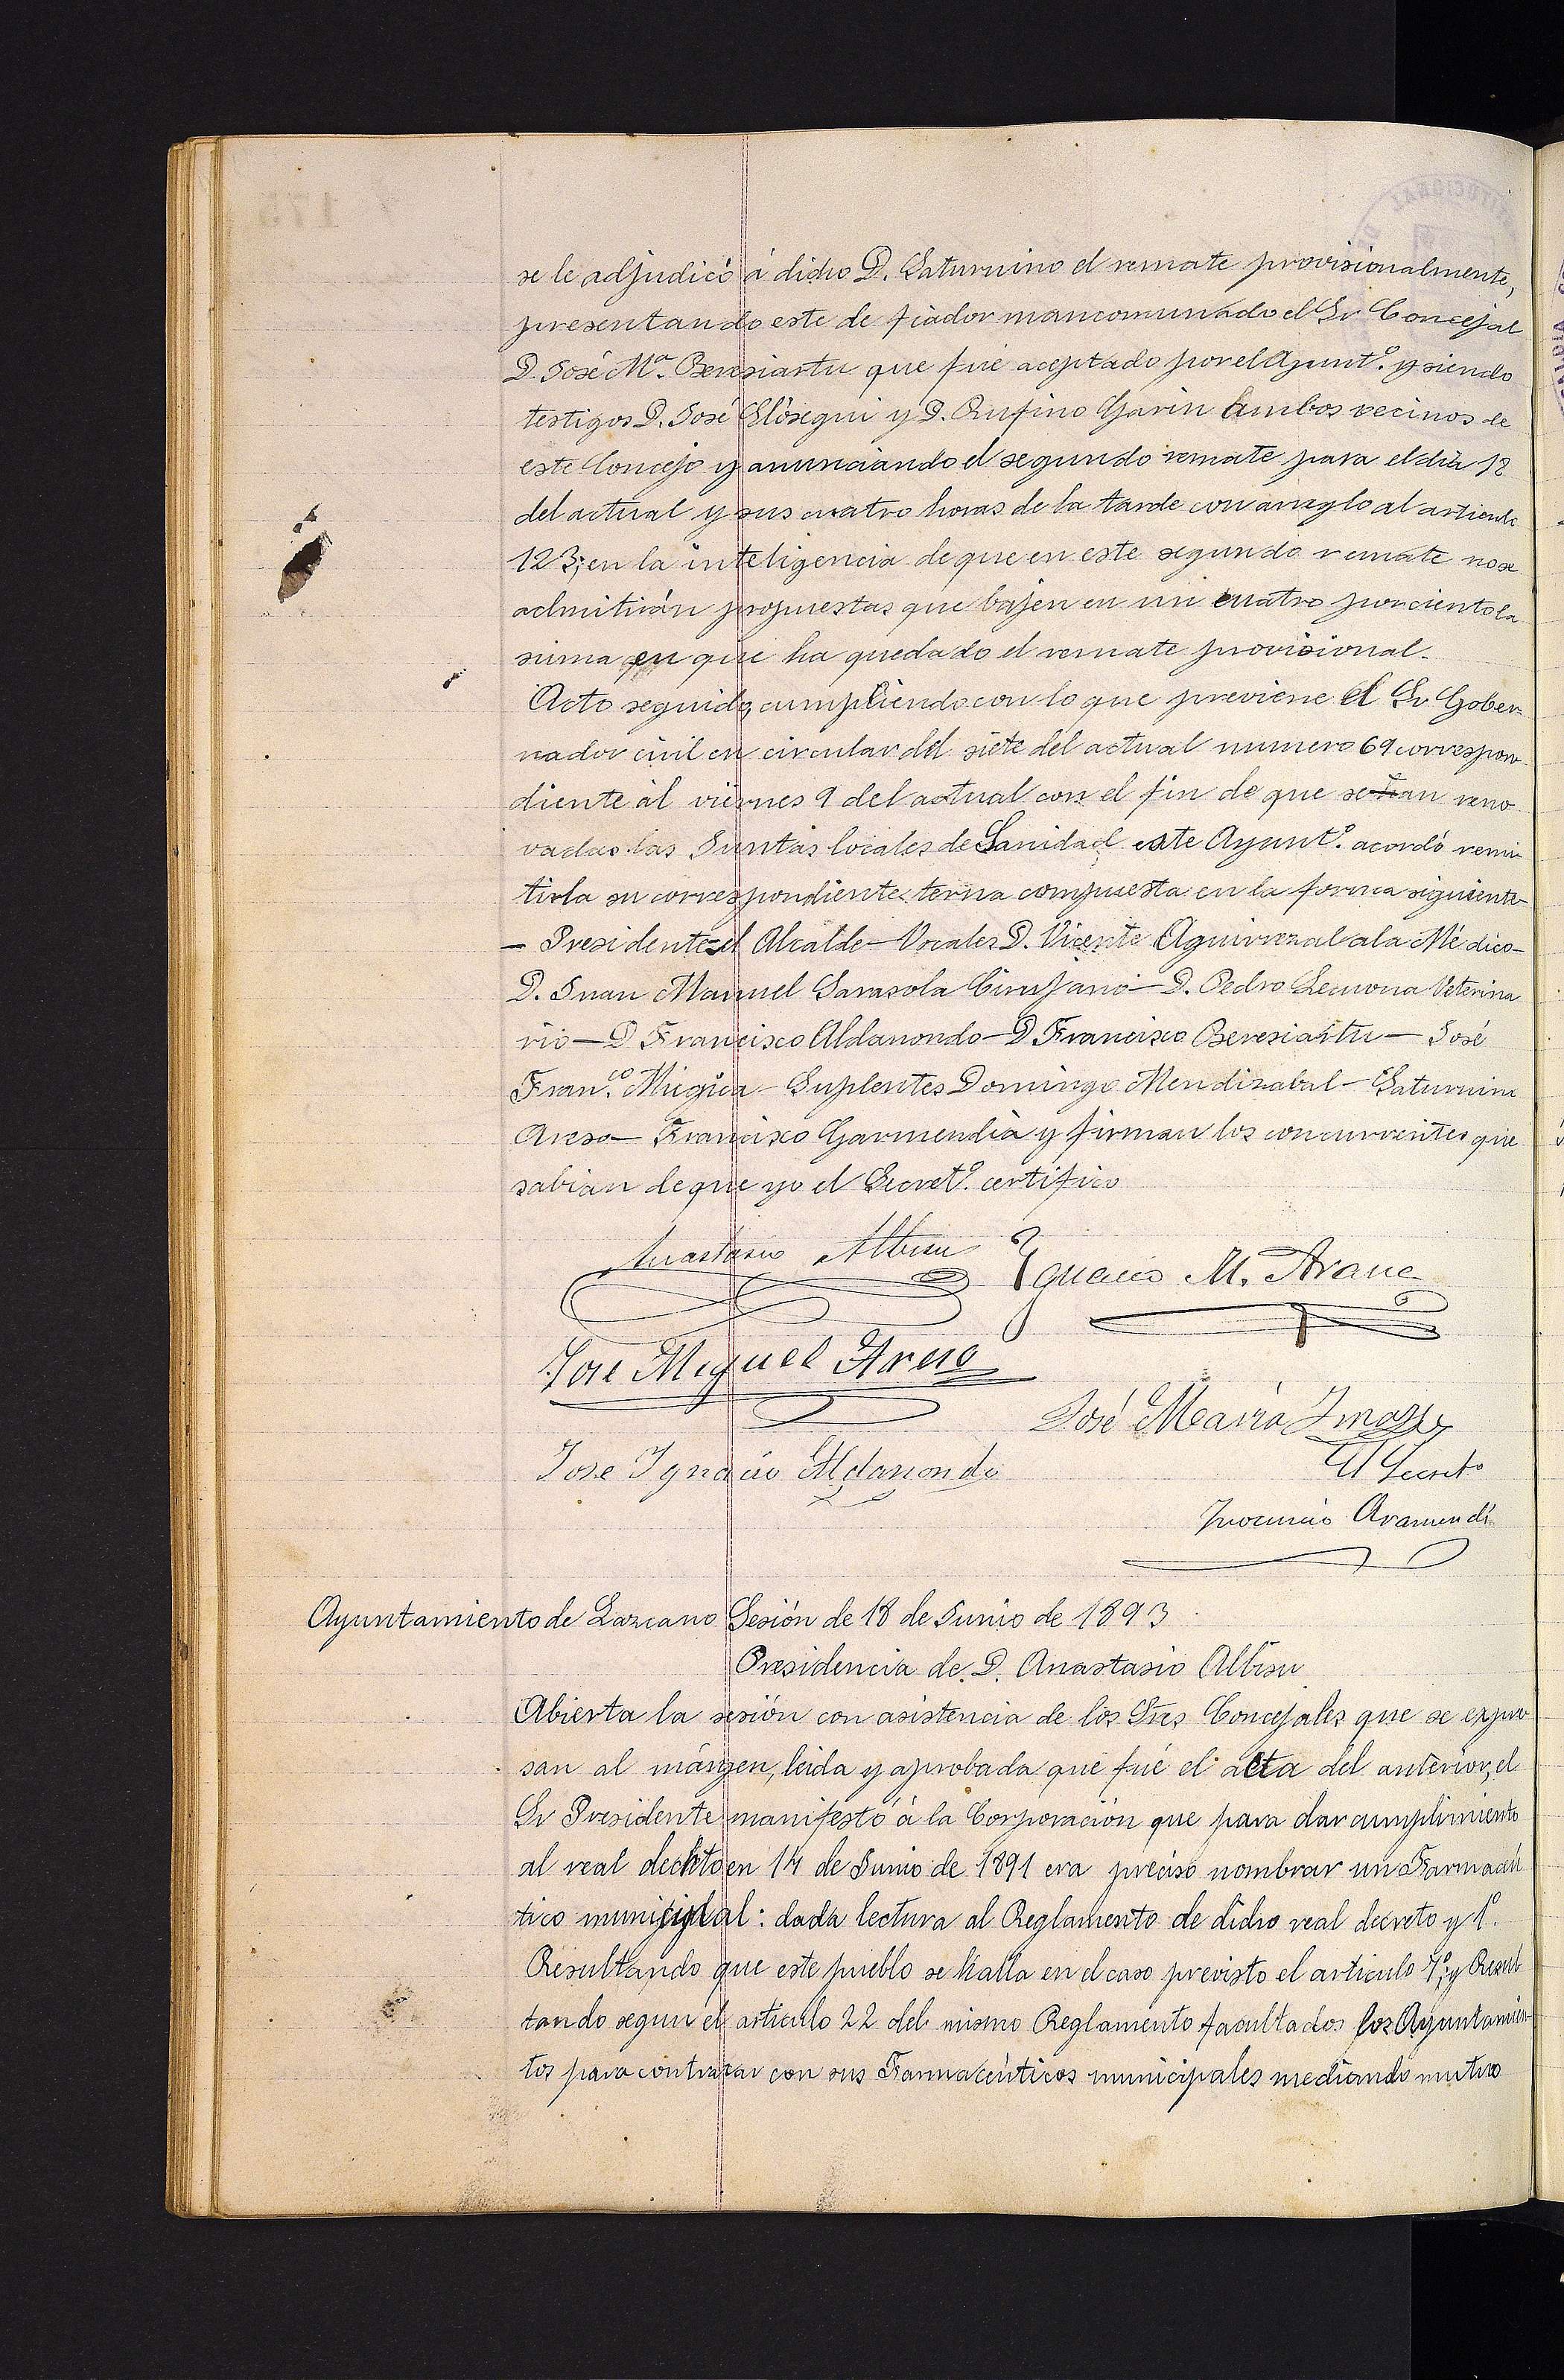 se le adjudicó á dicho D. Saturnino el remate provisionalmente,
presentando este de fiador mancomunado el Sr Concejal
D. José Mª. Beresiartu que fué aceptado por el Ayuntº. y siendo
testigos D. José Elósegui y D. Rufino Garin ambos vecinos de
este Concejo y anunciando el segundo remate para el dia 18
del actual y sus cuatro horas de la tarde con arreglo al articulo
123; en la inteligencia de que en este segundo remate no se
admitirán propuestas que bajen en un cuatro por ciento la
suma en que ha quedado el remate provisional.
Acto seguido, cumpliendo con lo que previene el Sr Gober-
nador civil en circular del siete del actual numero 69 correspon-
diente al viernes 9 del actual con el fin de que sean reno
vadas las Juntas locales de Sanidad este Ayuntº. acordó remi
tirla su correspondiente terna compuesta en la forma siguiente-
- Presidente el Alcalde - Vocales D. Vicente Aguirrezalala Médico-
D. Juan Manuel Sarasola Cirujano - D. Pedro Lecuona Veterina
rio - D Francisco Aldanondo - D Francisco Beresiartu - José
Fran.co Mugica - Suplentes Domingo Mendizabal - Saturnino
Areso - Francisco Garmendia y firman los concurrentes que
sabian de que yo el Secretº. certifico
Anastasio Albisu
Ygnacio M. Arana
José Miguel Areso
José Maria Imaz
Jose Ygnacio Aldanondo
El Secreto
Inocencio Aramendi
Ayuntamiento de Lazcano Sesión de 18 de Junio de 1893
Presidencia de D. Anastasio Albisu
Abierta la sesión con asistencia de los Sres Concejales que se expre
san al márgen, leida y aprobada que fué el acta del anterior, el
Sr Presidente manifestó á la Corporación que para dar cumplimiento
al real decreto en 14 de Junio de 1891 era preciso nombrar un Farmacéu
tico municipal: dada lectura al Reglamento de dicho real decreto y 1º.
Resultando que este pueblo se halla en el caso previsto el articulo 7º; y Resul
tando segun el articulo 22 del mismo Reglamento facultados los Ayuntamien-
tos para contratar con sus Farmacéuticos municipales mediando mutuo